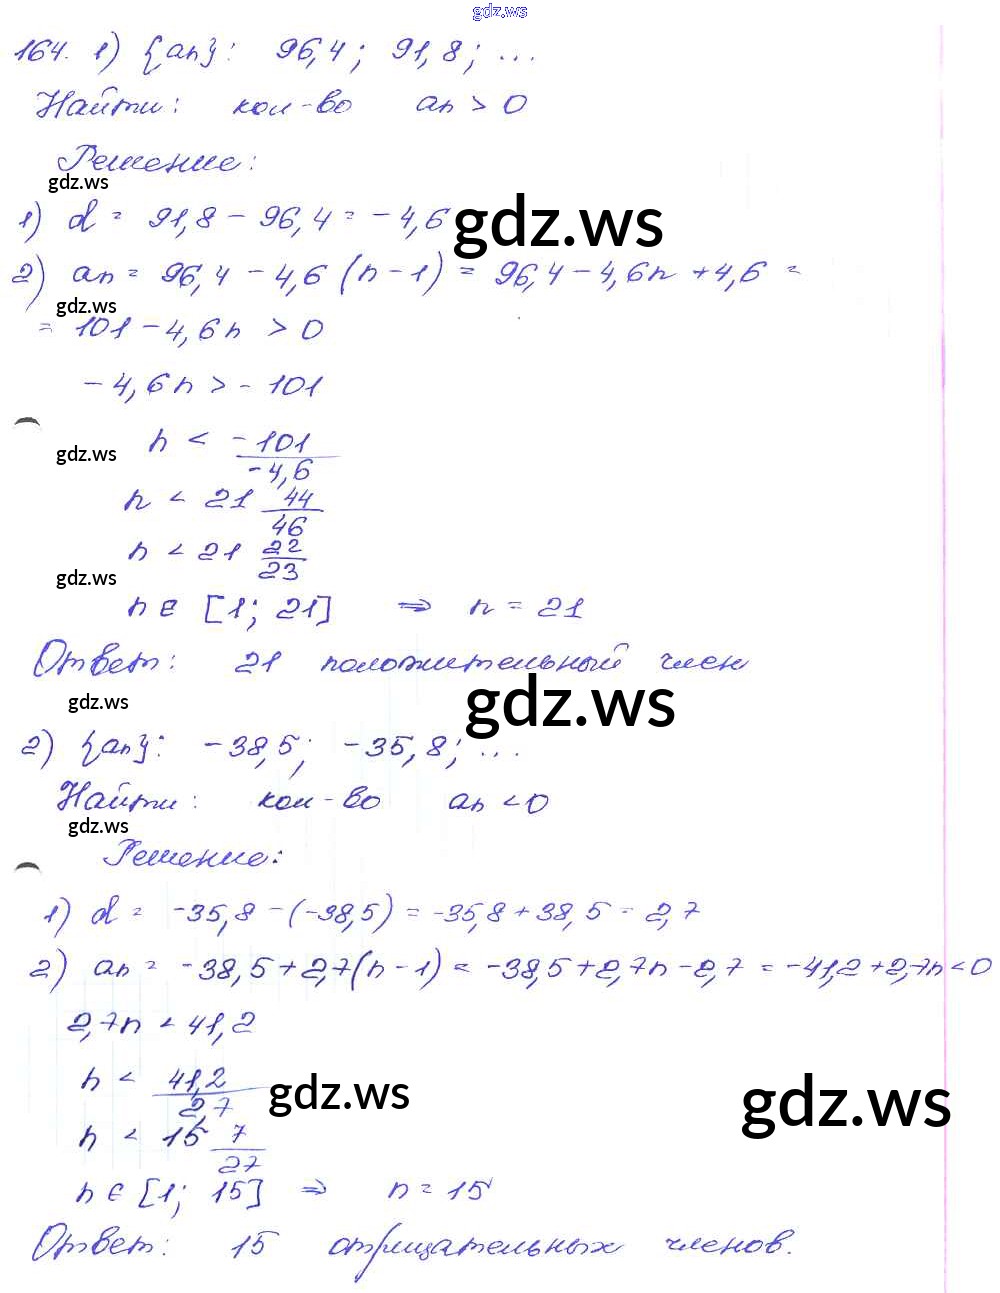 gdz.ws
164. 1) {an}: 96,4; 91,8; ...
Найти: кол-во an > 0
Решение:
gdz.ws
1) d = 91,8 - 96,4 = -4,6
gdz.ws
2) an = 96,4 - 4,6 (n-1) = 96,4 - 4,6n + 4,6 =
gdz.ws
= 101 - 4,6n > 0
-4,6n > -101
gdz.ws
n < -101/-4,6
n < 21 44/46
n < 21 22/23
gdz.ws
n ∈ [1; 21] ⇒ n = 21
Ответ: 21 положительный член
gdz.ws
gdz.ws
2) {an}: -38,5; -35,8; ...
Найти: кол-во an < 0
gdz.ws
Решение:
1) d = -35,8 - (-38,5) = -35,8 + 38,5 = 2,7
2) an = -38,5 + 2,7(n-1) = -38,5 + 2,7n - 2,7 = -41,2 + 2,7n < 0
2,7n < 41,2
n < 41,2/2,7
gdz.ws
gdz.ws
n < 15 7/27
n ∈ [1; 15] ⇒ n = 15
Ответ: 15 отрицательных членов.